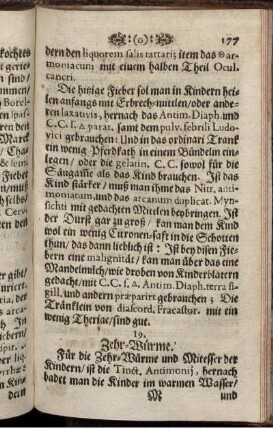 (o) 177
dern den liquorem salis tattaris item das ⊖ar-
moniacum mit einem halben Theil Ocul.
cancri.
Die hitzige Fieber sol man in Kindern hei-
len anfangs mit Erbrech-mittlen/oder ande-
ren laxativis, hernach das Antim. Diaph. und
C. C. f. △ parat. samt dem pulv. febrili Ludo-
vici gebrauchen: Und in das ordinari Tranck
ein wenig Pferdkath in einem Bündelin ein-
legen / oder die gelatin. C. C. sowol für die
Säugam̃e als das Kind brauchen. Ist das
Kind stärker/ muß man ihme das Nitr. anti-
moniatum, und das arcanum duplicat. Myn-
sichti mit gedachten Mittlen beybringen. Ist
der Durst gar zu groß / kan man dem Kind
wol ein wenig Citronen-saft in die Schotten
thun, das dann lieblich ist: Ist bey disen Fie-
bern eine malignität / kan man über das eine
Mandelmilch/wie droben von Kinderblatern
gedacht/mit C. C. f. △. Antim. Diaph. terra si-
gill. und andern præparirt gebrauchen; Die
Tränklein von diascord. Fracastor. mit ein
wenig Theriac/sind gut.
19.
Zehr-Würme.
Für die Zehr-Würme und Mitesser der
Kindern / ist die Tinct. Antimonij, hernach
badet man die Kinder im warmen Wasser/
M und